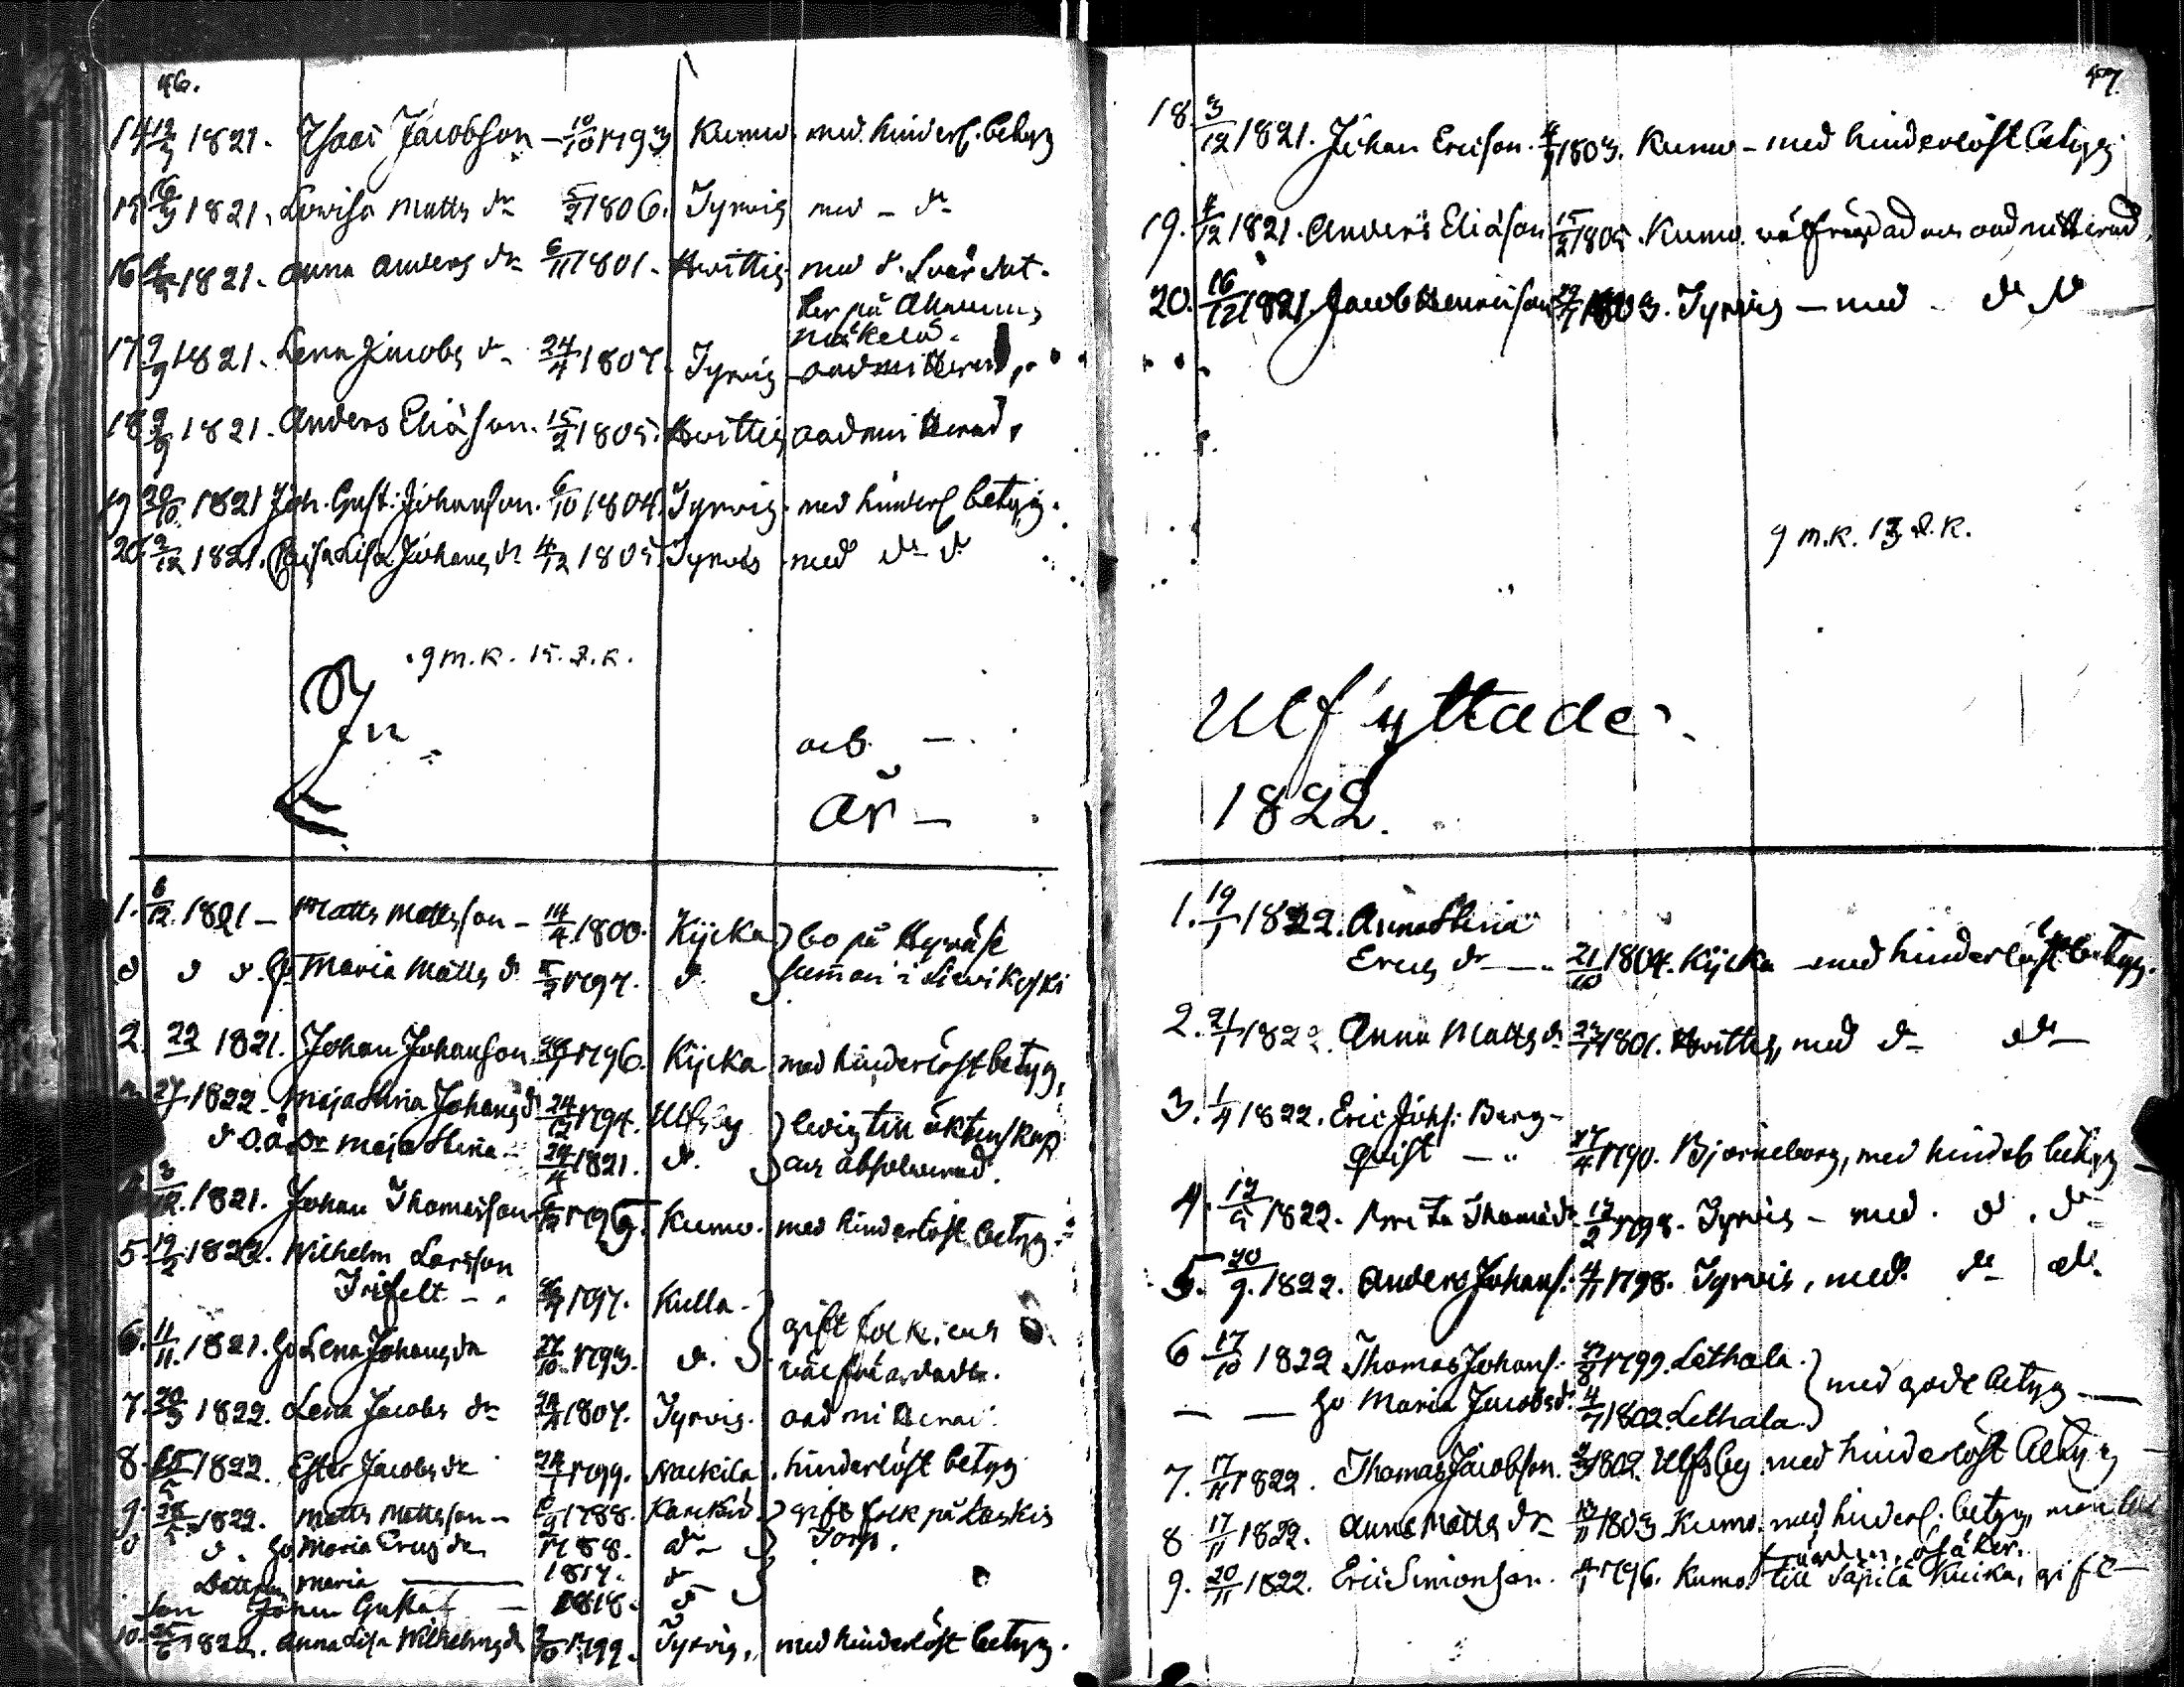 46.
14 12/3 1821. Isaac Jacobsson – 10/10 1793 Kumo. med hinderl. betyg
15 16/3 1821. Lovisa Matts dr 5/2 1806. Tyrvis med – dr
16 1821. Anna Anders dr 6/11 1801. Hvittis. med d.
ter på
17 9/9 1821. Lena Jacobs dr 24/4 1807. Tyrvis admitterad,
18 9/9 1821. Anders Eliasson. 15/2 1805. Hvittis admitterad,
19 20/10 1821 Joh. Gust. Johansson. 6/10 1804. Tyrvis. med hinderl betyg.
20. 9/12 1821. Caisa Lisa Johans dr 4/12 1805 Tyrvis med dr dr
9 M.K. 15. Q.K.
In
och –
År –
1. 6/12. 1821 – Matts Mattsson – 14/4 1800. Kjicka bo på Hyväse
d d d. h. Maria Matts dr 1797. d. samman i Lievikoski
2. 22 1821. Johan Johansson 1796. Kjicka med hinderlöst betyg,
27 1822. Maja Stina Johans dr 24/12 1794. Ulfsby ledig till äktenskap
d O.ä. Dr Maja Stina – 24/4 1821. d. och absolverad.
3/12. 1821. Johan Thomasson Kumo. med hinderlöst betyg.
5 19/2 1822. Wilhelm Larsson
Trifelt – 1797. Kulla –
gift folk
6. 11/11. 1821. h. Lena Johans dr 27/10 1793. d. välfräjdade.
7. 20/3 1822. Lena Jacobs dr 24/4 1807. Tyrvis. admitterad.
8. 1822. Ester Jacobs dr 1799. Nackila. hinderlöst betyg
9. 1822. Matts Mattsson – 1788. gift folk på Laskis
d d. h. Maria Erics dr 1788. dr Torp.
Dottern Maria – 1817. d
Son Johan Gustaf – 1818. d
10. 1822. Anna Lisa Wilhelms dr 1799. Tyrvis, med hinderlöst betyg.
47.
18. 3/12 1821. Johan Ericsson. 1803. Kumo – med hinderlöst betyg
19. 4/12 1821. Anders Eliasson 15/2 1805. Kumo. välfräjdad och admitterad,
20. 16/12 1821. Jacob Henricsson 1803. Tyrvis – med – dr dr
9 M.K. 13 Q.K.
Utflyttade
1822.
1. 19/1 1822. Anna Stina
Erics dr – 21/10 1804. Kjicka – med hinderlöst betyg.
2. 21/1 1822. Anna Matts dr 1801. Hvittis, med dr dr
3. 1/4 1822. Eric Johs: Berg-
qvist – 1790. Björneborg, med hinderl betyg
4. 1822. Brita Thomæ dr 12/2 1798. Tyrvis – med. d. dr
5. 20/9. 1822. Anders Johans. 4/11 1798. Tyrvis, med. dr dr
6 17/10 1822 Thomas Johans. 1799. Lethala.
med gode betyg –
h Maria Jacobs dr 4/7 1802. Lethala.
7. 17/11 1822. Thomas Jacobsson. 1802. Ulfsby med hinderlöst betyg
8 17/11 1822. Anna Matts dr 1803 Kumo. med hinderl. betyg, men
osäker.
9. 20/11 1822. Eric Simonsson. 1796. Kumo till Säpilä Kuicka, gift